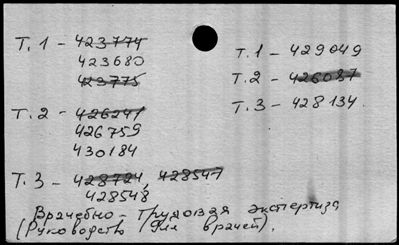 Т. 1 - 423774
423680
423775
Т. 2 - 426241
426759
430184
Т. 3 - 428724, 428547
428548
Т. 1 - 429049
Т. 2 - 426087
Т. 3 - 428134.
Врачебно-Трудовая экспертиза
(Руководств для врачей).